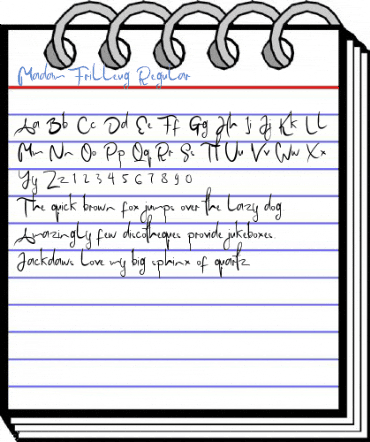 Madam Frilleug Regular
Aa Bb Cc Dd Ee Ff Gg Hh Ii Jj Kk Ll
Mm Nn Oo Pp Qq Rr Ss Tt Uu Vv Ww Xx
Yy Zz 1 2 3 4 5 6 7 8 9 0
The quick brown fox jumps over the lazy dog
Amazingly few discotheques provide jukeboxes.
Jackdaws love my big sphinx of quartz